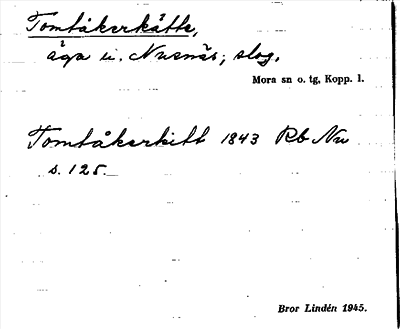 Tomtåkerkätte,
äga i. Nusnäs; slog.
Mora sn o. tg, Kopp. l.
Tomtåkerkitt 1843 Rb Nu
s. 125.
Bror Lindén 1945.